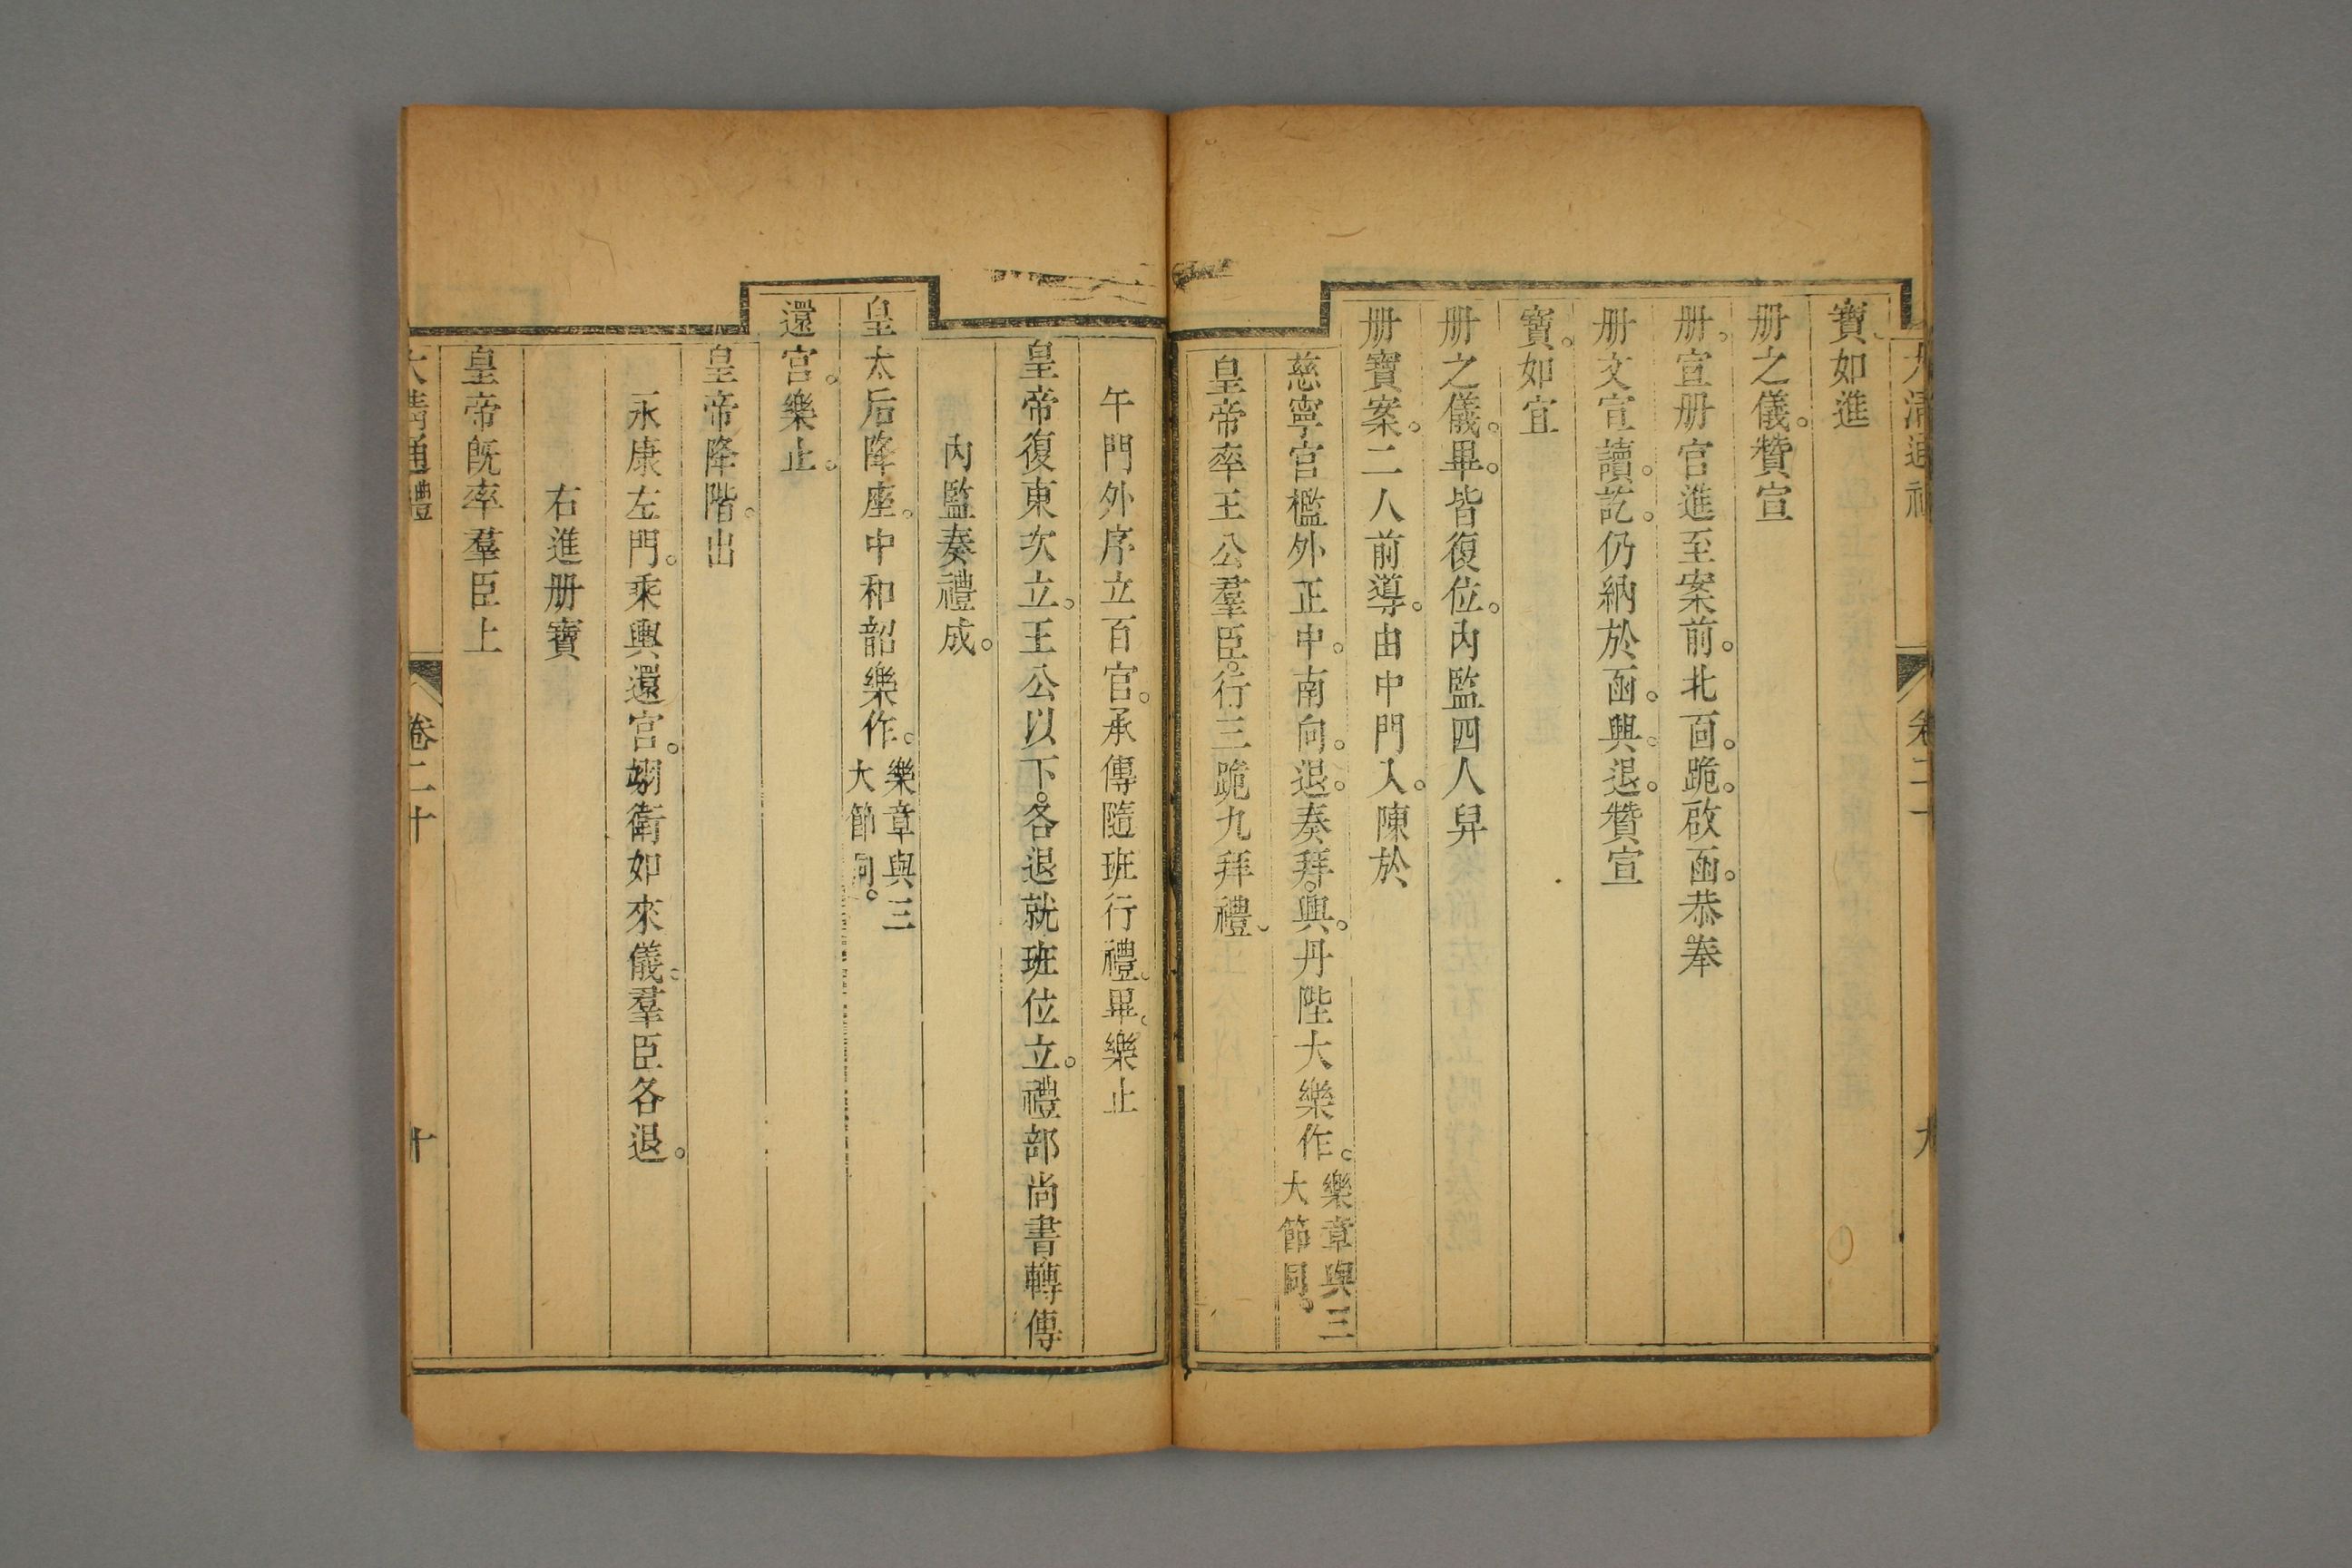 大清通禮 卷二十 九
寶如進
册之儀。贊宣
册。宣册官進至案前。北面。跪。啟函。恭奉
册文宣讀。訖。仍納於函。興。退。贊宣
寶。如宣
册之儀。畢。皆復位。內監四人舁
册寶案。二人前導。由中門入。陳於
慈寧宮檻外正中。南向。退。奏拜。興。丹陛大樂作。樂章與三大節同。
皇帝率王公羣臣。行三跪九拜禮。
午門外序立百官。承傳隨班行禮。畢。樂止
皇帝復東次立。王公以下。各退就班位立。禮部尚書轉傳
內監奏禮成。
皇太后降座。中和韶樂作。樂章與三大節同。
還宮。樂止。
皇帝降階。出
永康左門。乘輿還宮。翊衛如來儀。羣臣各退。
右進册寶
皇帝旣率羣臣上
大清通禮 卷二十 十